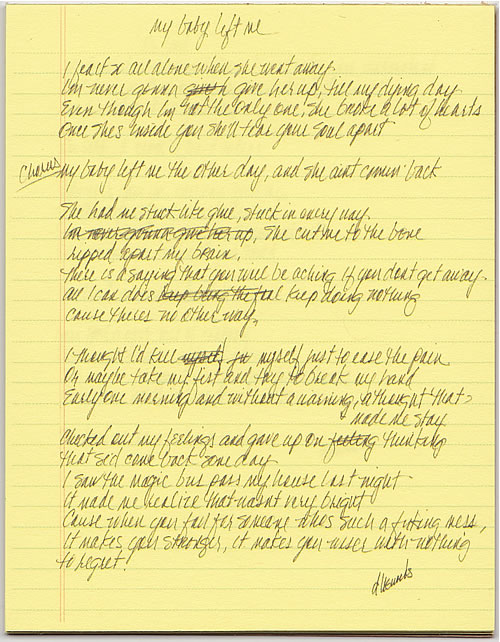 my baby left me
I feel so all alone when she went away
I'm never gonna give her up, till my dying day
Even though I'm not the only one, she broke a lot of hearts
Once she's inside you she'll tear your soul apart
Chorus my baby left me the other day, and she aint comin' back
She had me stuck like glue, stuck in every way.
I'm never gonna give her up, She cut me to the bone
ripped apart my brain.
There is a saying that you will be aching if you dont get away
all I can do is keep being the fool keep doing nothing
cause there's no other way,
I thought I'd kill myself just to ease the pain
Or maybe take my fist and try to break my hand
Early one morning and without a warning, a thought that
made me stay
Checked out my feelings and gave up on feeling thinking
that she'd come back some day
I saw the magic bus pass my house last night
It made me realize that wasn't very bright
Cause when you fall for someone who's such a mess,
it makes you stronger, it makes you wiser with nothing
to regret.